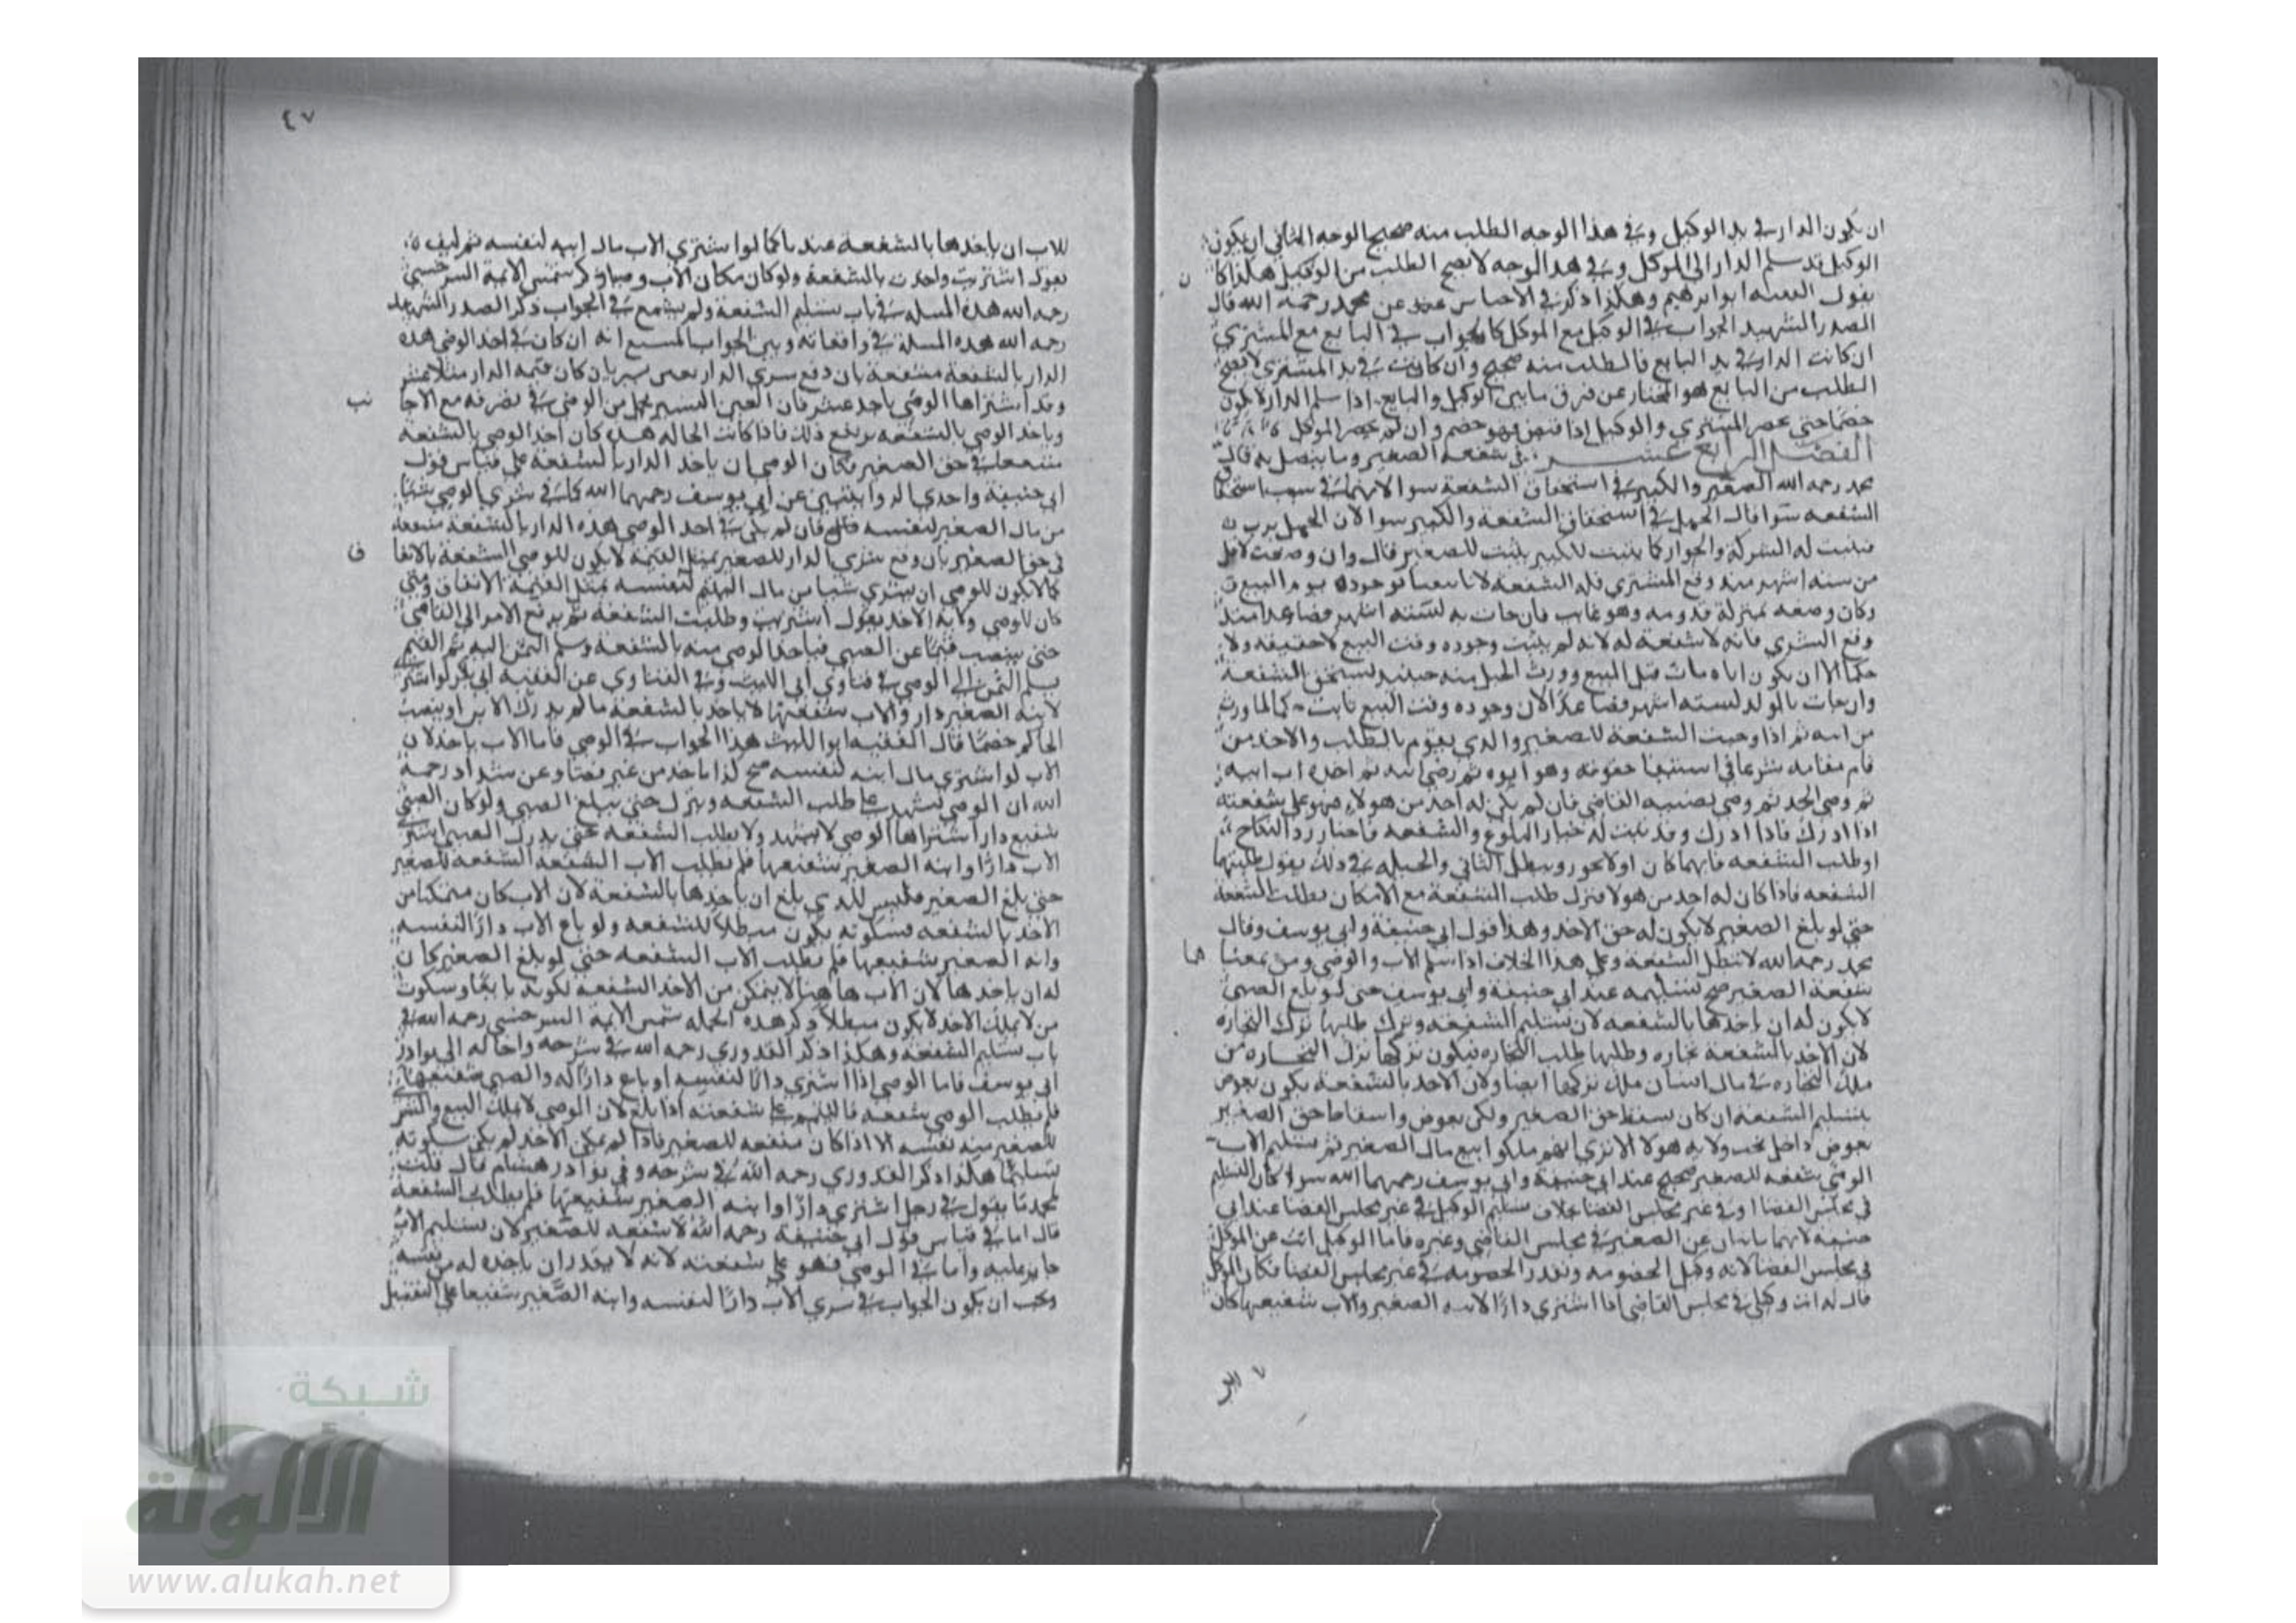 ان يكون الدار في يد الوكيل وفي هذا الوجه الطلب منه صحيح الوجه الثاني ان يكون
الوكيل قد سلم الدار الى الموكل وفي هذا الوجه لا يصح الطلب من الوكيل هكذا كا
يقول الفقيه ابو ابرهيم وهكذا ذكر في الاجناس عن محمد رحمه الله قال
الصدر الشهيد الجواب في الوكيل مع الموكل كالجواب في البايع مع المشتري
ان كانت الدار في يد البايع فالطلب منه صحيح وان كانت في يد المشتري لا يصح
الطلب من البايع هو المختار عن فرق ما بين الوكيل والبايع اذا سلم الدار لا يكون
خصما حتى يحضر المشتري والوكيل اذا قبض فهو خصم وان لم يحضر الموكل
الفصل الرابع عشر في شفعة الصغير وما يتصل به قال
محمد رحمه الله الصغير والكبير في استحقاق الشفعة سوا لانهما في سبب استحقاق
الشفعه سوا قال الحمل في استحقاق الشفعة والكبير سوا لان الحمل يرث
فيثبت له الشركة والجوار كما يثبت للكبير يثبت للصغير قال وان وضعت لاقل
من ستة اشهر منذ وقع المشتري فله الشفعة لانا تيقنا بوجوده يوم البيع
وكان وضعه بمنزلة قدومه وهو غايب فان جات به لستة اشهر فصاعدا منذ
وقع الشري فانه لا شفعة له لانه لم يثبت وجوده وقت البيع لا حقيقة ولا
حكما الا ان يكون اباه مات قبل البيع وورث الحبل منه حينيذ يستحق الشفعة
وان جات بالولد لستة اشهر فصاعدا لان وجوده وقت البيع ثابت حكما لما ورث
من ابيه ثم اذا وجبت الشفعة للصغير والذي يقوم بالطلب والاخذ من
قام مقامه شرعا في استيفا حقوقه وهو ابوه ثم وصي ابيه ثم اب ابيه
ثم وصي الجد ثم وصي نصبه القاضي فان لم يكن له احد من هولاء فهو على شفعته
اذا ادرك فاذا ادرك وقد ثبت له خيار البلوغ والشفعه فاختار رد النكاح
او طلب الشفعه فايهما كان اولا يجوز ويبطل الثاني والحيلة في ذلك يقول طلبتهما
الشفعه فاذا كان له احد من هولا فترك طلب الشفعة مع الامكان بطلت الشفعة
حتى لو بلغ الصغير لا يكون له حق الاخذ وهذا قول ابي حنيفة وابي يوسف وقال
محمد رحمه الله لا تبطل الشفعة وعلى هذا الخلاف اذا سلم الاب والوصي ومن بمعنا هما
شفعة الصغير صح تسليمه عند ابي حنيفة وابي يوسف حتى لو بلغ الصبي
لا يكون له ان ياخذها بالشفعه لان تسليم الشفعه وترك طلبها ترك التجاره
لان الاخذ بالشفعة تجاره وطلبها طلب التجاره فيكون تركها ترك التجاره من
ملك التجاره في مال انسان ملك تركها ايضا ولان الاخذ بالشفعة يكون بعوض
بتسليم الشفعه ان كان سقط حق الصغير ولكن بعوض واسقاط حق الصغير
بعوض داخل تحت ولاية هولا الا ترى انهم ملكوا بيع مال الصغير ثم تسليم الاب
الوصي شفعه للصغير صحيح عند ابي حنيفة وابي يوسف رحمهما الله سوا كان التسليم
في مجلس القضا او في غير مجلس القضا خلاف تسليم الوكيل في غير مجلس القضا عند ابي
حنيفه لانهما نايبان عن الصغير في مجلس القاضي وغيره فاما الوكيل نايب عن الموكل
في مجلس القضا لانه وكيل الخصومه وتعذر الخصومه في غير مجلس القضا فكان الموكل
قال له انت وكيلي في مجلس القاضي اذا اشترى دارا لابنه الصغير والاب شفيعها كان
٤٧
للاب ان ياخذها بالشفعة عندنا كما لو اشترى الاب مال ابنه لنفسه ثم كيف
يقول اشتريت واخذت بالشفعة ولو كان مكان الاب وصيا ذكر شمس الايمة السرخسي
رحمه الله هذه المسلة في باب تسليم الشفعة ولم يشبع في الجواب ذكر الصدر الشهيد
رحمه الله هذه المسلة في واقعاته وبين الجواب المشبع انه ان كان في اخذ الوصي هذه
الدار بالشفعة منفعة بان وقع شري الدار بغبن يسير بان كان قيمة الدار مثلا عشر
وقد اشتراها الوصي باحد عشر فان الغبن اليسير يتحمل من الوصي في تصرفه مع الاجا نب
وياخذ الوصي بالشفعه يرتفع ذلك فاذا كانت الحاله هذه كان اخذ الوصي بالشفعة
منفعة في حق الصغير فكان الوصي ان ياخذ الدار بالشفعه على قياس قول
ابي حنيفة واحدى الروايتين عن ابي يوسف رحمهما الله كما في شري الوصي شيا
من مال الصغير لنفسه قال فان لم يكن في اخذ الوصي هذه الدار بالشفعة منفعة
في حق الصغير بان وقع شري الدار للصغير بمثل القيمة لا يكون للوصي الشفعة بالاتفا ق
كما لا يكون للوصي ان يشتري شيا من مال اليتيم لنفسه بمثل القيمة الاتفاق ومتى
كان للوصي ولاية الاخذ يقول اشتريت وطلبت الشفعه ثم يرفع الامر الى القاضي
حتى ينصب قيما عن الصبي فياخذ الوصي منه بالشفعه وسلم الثمن اليه ثم القيم
يسلم الثمن الى الوصي في فتاوي ابي الليث وفي الفتاوي عن الفقيه ابي بكر لو اشترى
لابنه الصغير دار والاب شفيعها لا ياخذ بالشفعة ما لم يدرك الابن او ينصب
الحاكم خصما قال الفقيه ابو الليث هذا الجواب في الوصي فاما الاب ياخذ لان
الاب لو اشترى مال ابنه لنفسه صح كذا ياخذ من غير قضا وعن شداد رحمة
الله ان الوصي يشهد على طلب الشفعه ويترك حتى يبلغ الصبي ولو كان الصبي
شفيع دار اشتراها الوصي لا يشهد ولا يطلب الشفعه حتى يدرك الصبي اشترى
الاب دارا وابنه الصغير شفيعها فلم يطلب الاب الشفعة للصغير
حتى بلغ الصغير فليس للذي بلغ ان ياخذها بالشفعة لان الاب كان متمكنا من
الاخذ بالشفعه فسكوته يكون مبطلا للشفعه ولو باع الاب دارا لنفسه
وابنه الصغير شفيعها فلم يطلب الاب الشفعه حتى لو بلغ الصغير كان
له ان ياخذها لان الاب هاهنا لا يتمكن من الاخذ الشفعه لكونه بايعا وسكوت
من لا يملك الاخذ لا يكون مبطلا ذكر هذه الجمله شمس الايمة السرخسي رحمه الله في
باب تسليم الشفعة وهكذا ذكر القدوري رحمه الله في شرحه واحاله الى نوادر
ابي يوسف فاما الوصي اذا اشترى دارا لنفسه او باع دارا له والصبي شفيعها
فلم يطلب الوصي شفعه فاليتيم على شفعته اذا بلغ لان الوصي لا يملك البيع والشرى
للصغير منه نفسه الا اذا كان منفعه للصغير فاذا لم يملك الاخذ لم يكن سكوته
تسليما هكذا ذكر القدوري رحمه الله في شرحه وفي نوادر هشام قال قلت
لمحمد ما يقول في رجل اشترى دارا وابنه الصغير شفيعها فلم يطلب الشفعة
قال اما في قياس قول ابي حنيفة رحمه الله لا شفعه للصغير لان تسليم الاب
جايز عليه واما في الوصي فهو على شفعته لانه لا يقدر ان ياخذه له من نفسه
ويجب ان يكون الجواب في شري الاب دارا لنفسه وابنه الصغير شفيعا على التفصيل
شبكة
الألوكة
www.alukah.net